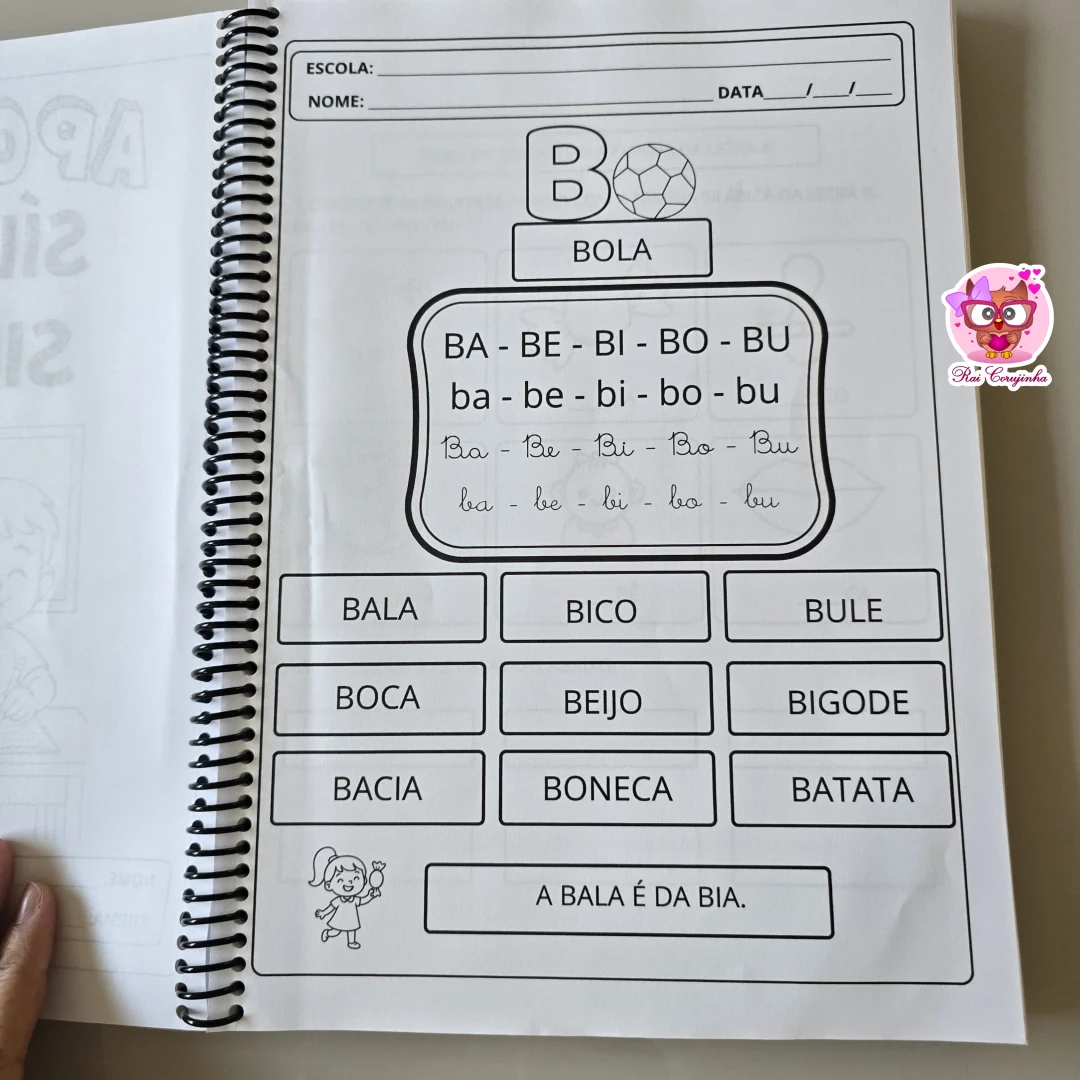 ESCOLA:
NOME: DATA / /
B
BOLA
BA - BE - BI - BO - BU
ba - be - bi - bo - bu
Ba - Be - Bi - Bo - Bu
ba - be - bi - bo - bu
BALA BICO BULE
BOCA BEIJO BIGODE
BACIA BONECA BATATA
A BALA É DA BIA.
Rai Corujinha